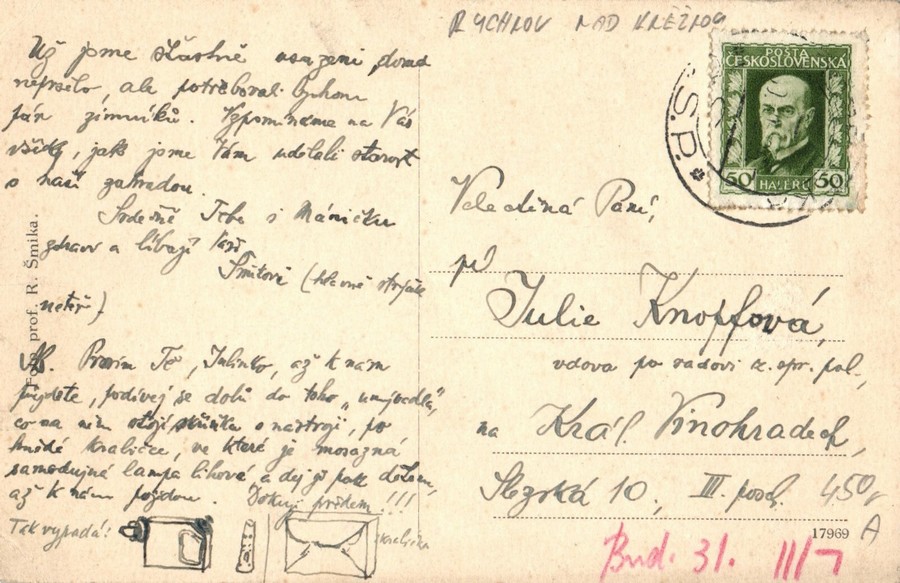 RYCHNOV NAD KNĚŽNOU
Už jsme šťastně usazeni, dosud
nepršelo, ale potřebovali bychom
pár zimníků. Vzpomínáme na Vás
všichni, jak jsme Vám udělali starost
o naši zahradou.
Srdečně Tebe i Máničku
zdraví a líbají Vaši
Šmitovi (hlavně strýček
neteř)
Prosím Tě, Julinko, až k nám
půjdete, podívej se dolů do toho „umyvadla",
co na něm stojí skříňka s nástroji, po
hnědé krabičce, ve které je mosazná
samodujná lampa lihová, a dej ji pak
až k nám půjdou. Děkuji předem!!!
Tak vypadá:
krabička
prof. R. Šmika.
POŠTA
ČESKOSLOVENSKÁ
50 HALÉŘŮ 50
Velectěná Paní,
pí
Julie Knopfová,
vdova po radovi z. spr. pol.,
na Král. Vinohradech,
Slezská 10, III. posch.
17969
Bud. 31. III/7
A